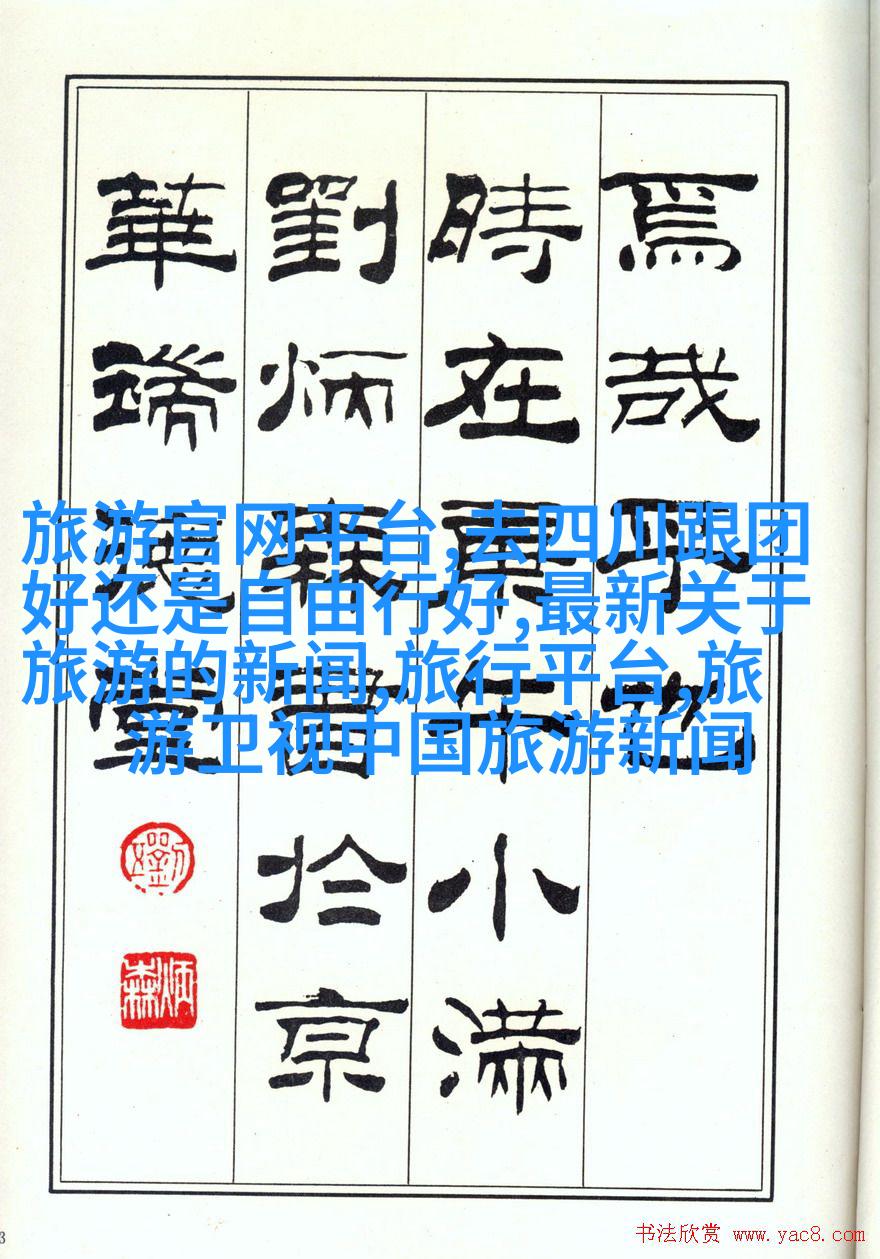 焉哉乎也
時在庚午小滿
劉炳森書於京
華
旅游官网平台,去四川跟团
好还是自由行好,最新关于
旅游的新闻,旅行平台,旅
游卫视中国旅游新闻
炳森
3
书法欣赏 www.yac8.com